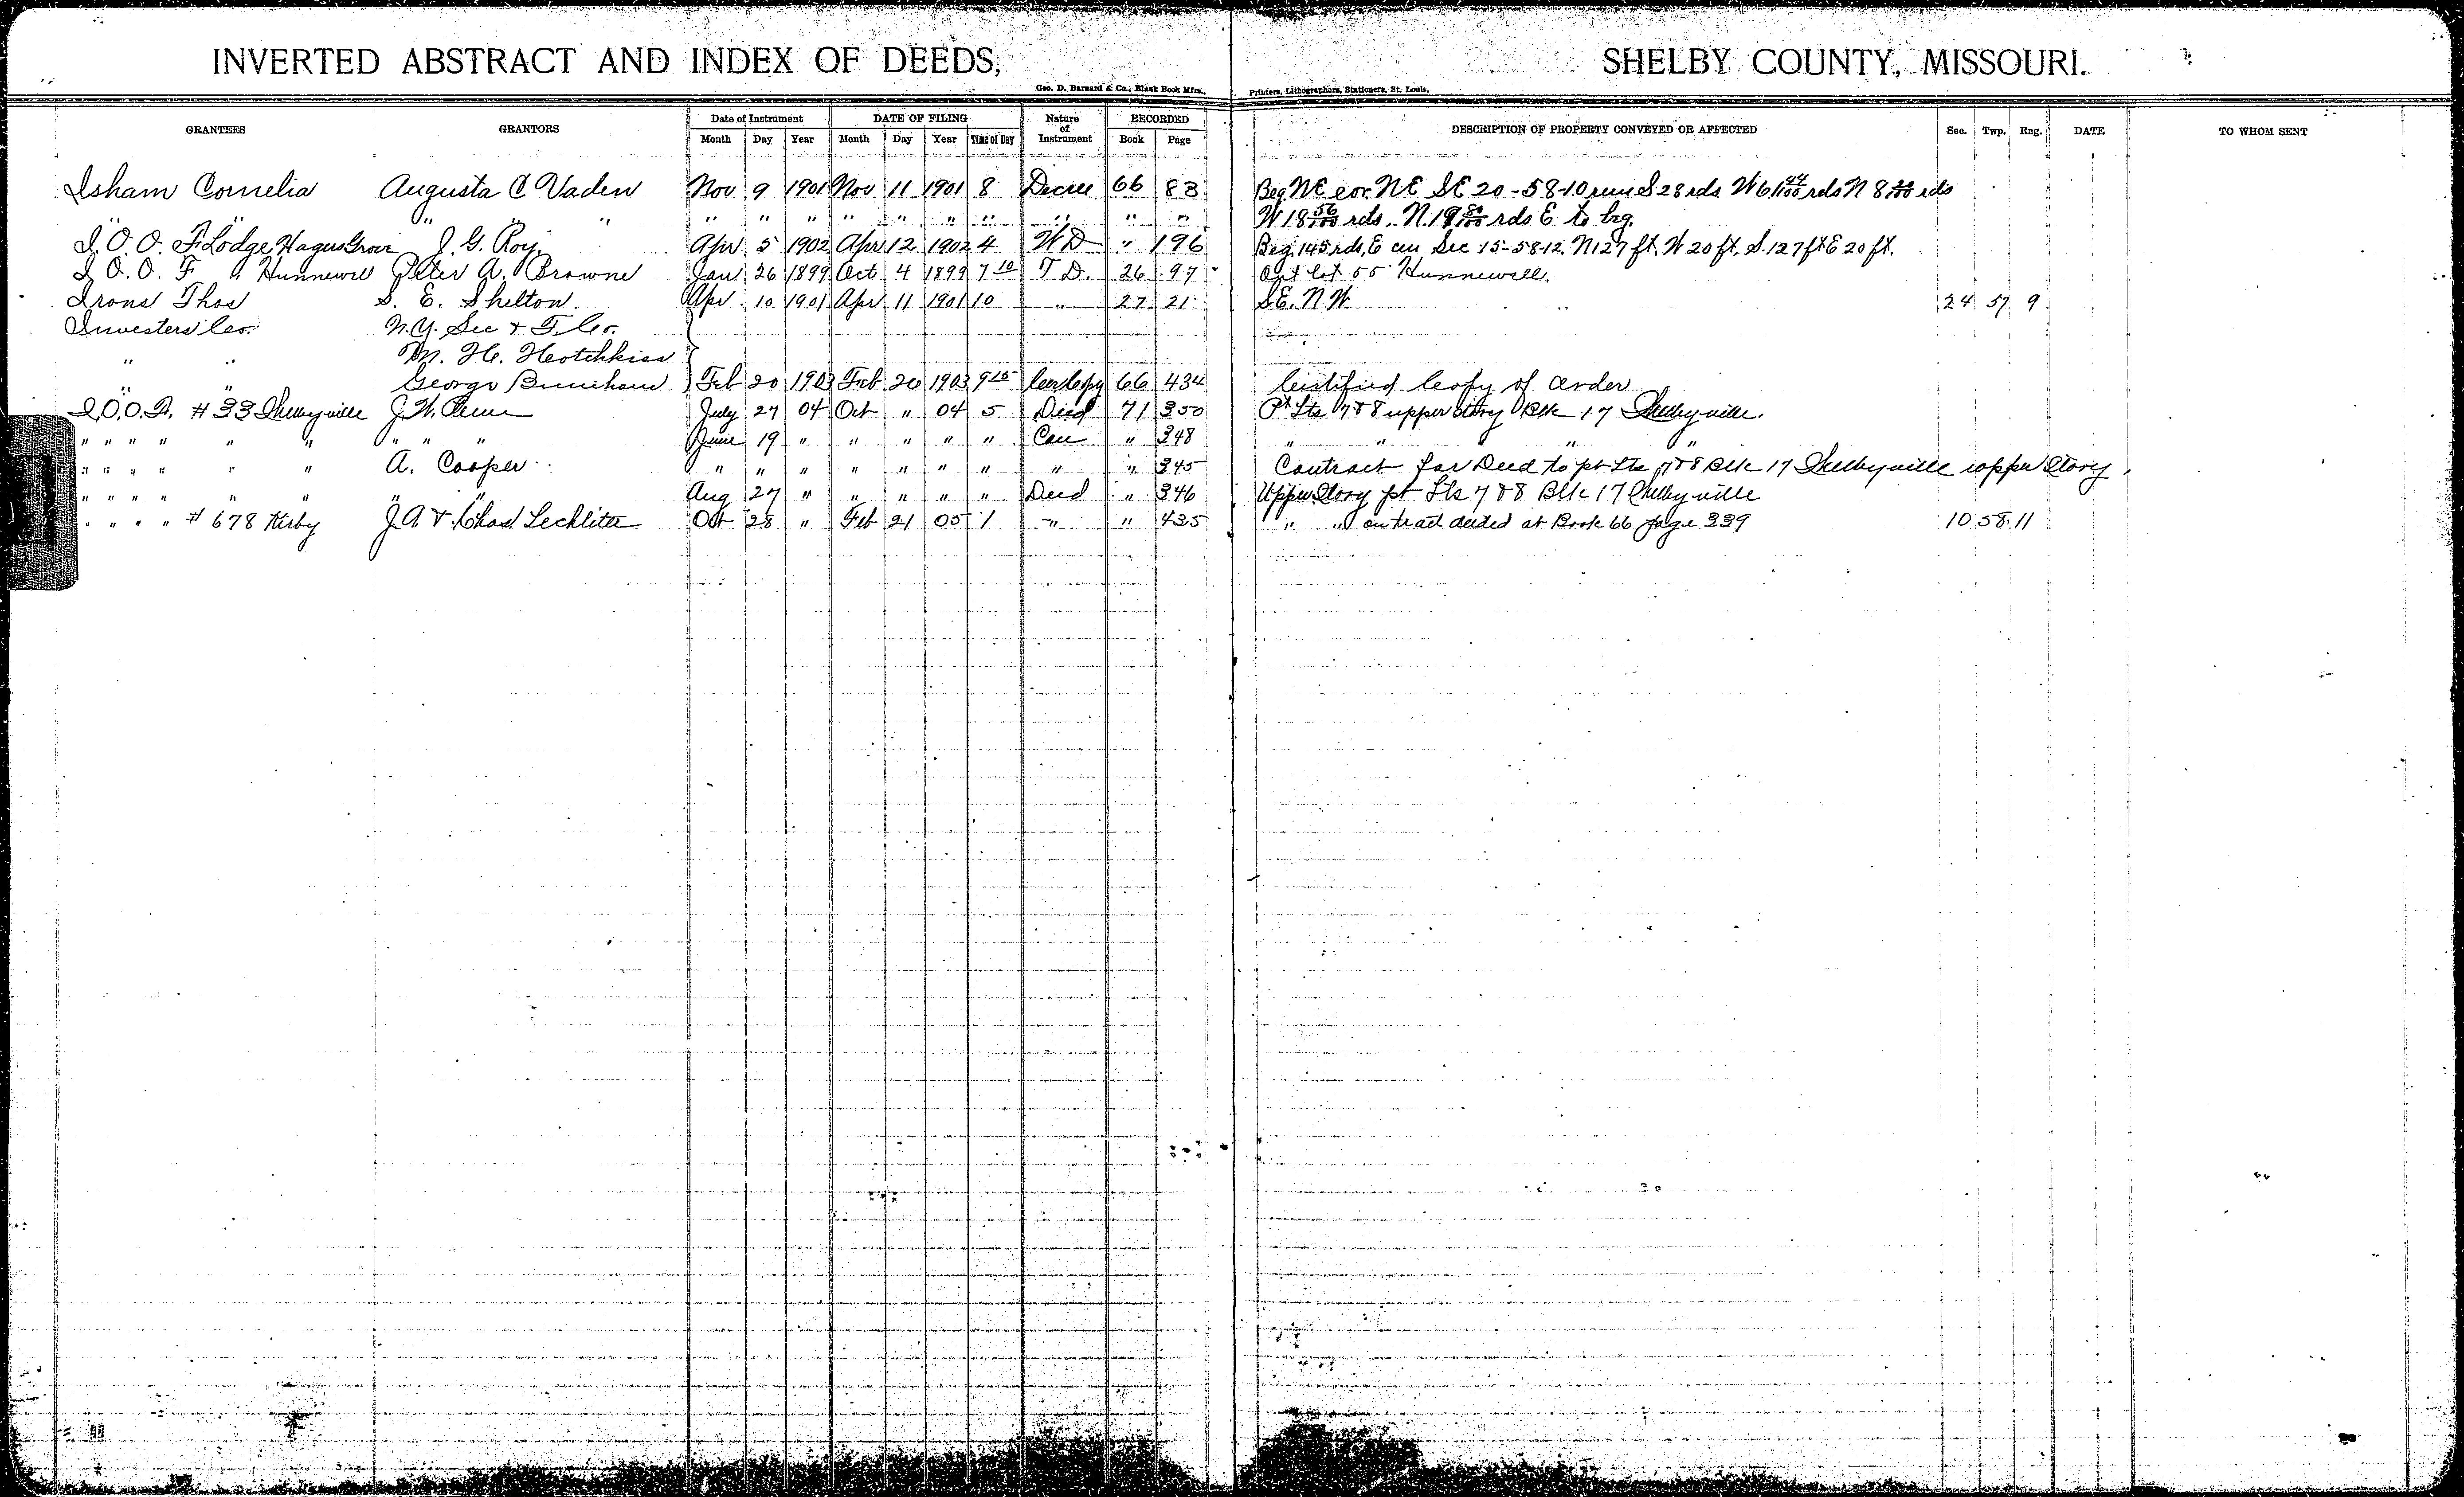 INVERTED ABSTRACT AND INDEX OF DEEDS, SHELBY COUNTY, MISSOURI.
Geo. D. Barnard & Co., Blank Book Mfrs., Printers, Lithographers, Stationers, St. Louis.
GRANTEES GRANTORS Date of Instrument DATE OF FILING Nature of Instrument RECORDED DESCRIPTION OF PROPERTY CONVEYED OR AFFECTED Sec. Twp. Rng. DATE TO WHOM SENT
Month Day Year Month Day Year Time of Day Book Page
Isham Cornelia Augusta C Vaden Nov 9 1901 Nov 11 1901 8 Decree 66 83 Beg NE cor NE SE 20-58-10 run S 28 rds W 61 44/100 rds N 8 rds
" " " " " " " " " " " " " " W 18 56/100 rds. N. 19 rds E to beg.
I. O. O. F. Lodge Hagus Grove J. G. Roy Apr 5 1902 Apr 12 1902 4 WD " 196 Beg 145 rds, E cen Sec 15-58-12, N 127 ft. W 20 ft, S. 127 ft E 20 ft.
I O. O. F " Hunnewell Peter A. Browne Jan 26 1899 Oct 4 1899 7 10 T D. 26 97 Out Lot 55 Hunnewell.
Irons Thos S. E. Shelton Apr 10 1901 Apr 11 1901 10 " 27 21 SE. NW 24 57 9
Investers Co. N.Y. Sec & T. Co.
" " M. H. Hotchkiss
" " George Burnham Feb 20 1903 Feb 26 1903 9 15 Cer Copy 66 434 Certified Copy of order
I.O.O.F. #33 Shelbyville J. W. July 27 04 Oct " 04 5 Deed 71 350 Pt Lts 7 & 8 upper story Blk 17 Shelbyville.
" " " " " " " " " June 19 " " " " " Con " 348 " " " "
" " " " " " A. Cooper " " " " " " " " " 345 Contract for Deed to pt Lts 7 & 8 Blk 17 Shelbyville upper Story
" " " " " " " " Aug 27 " " " " " Deed " 346 Upper Story pt Lts 7 & 8 Blk 17 Shelbyville
" " " " #678 Kirby J. A & Chas Lechliter Oct 28 " Feb 21 05 1 " " 435 " " on tract deeded at Book 66 page 339 10 58 11